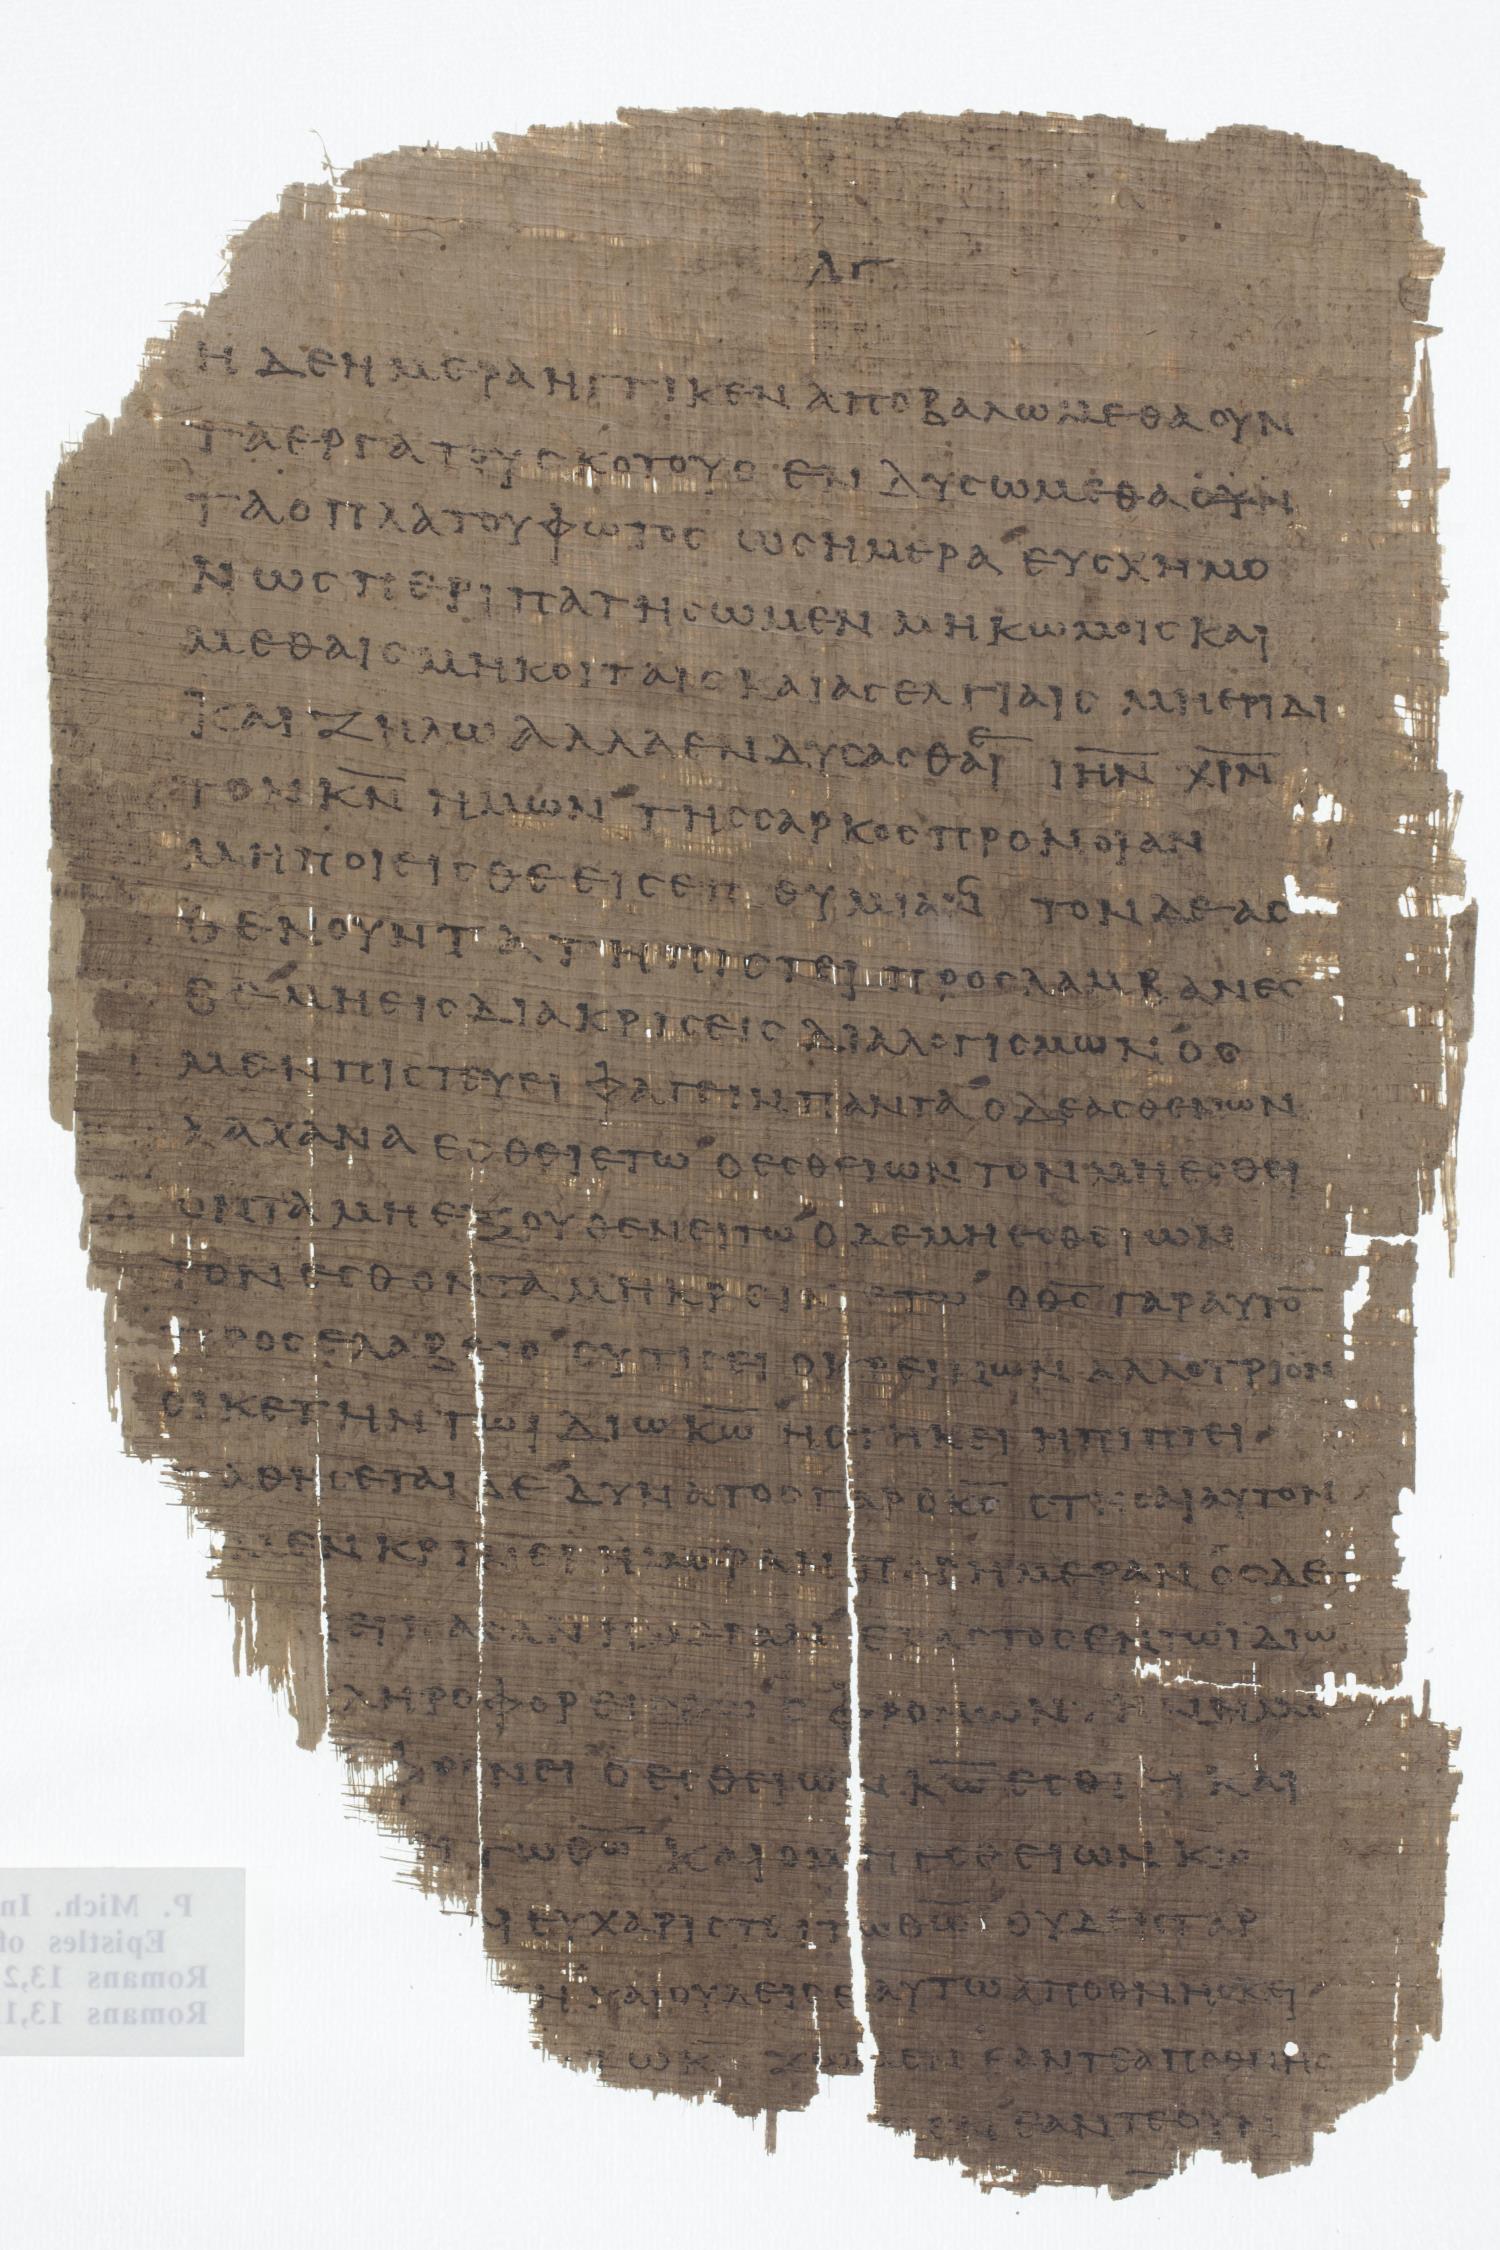 λγ
η δε ημερα ηγγικεν αποβαλωμεθα ουν
τα εργα του σκοτους ενδυσωμεθα ουν
τα οπλα του φωτος ως ημερα ευσχημο
νως περιπατησωμεν μη κωμοις και
μεθαις μη κοιταις και ασελγιαις μη εριδι
και ζηλω αλλα ενδυσασθαι ιην χρν
τον κν ημων της σαρκος προνοιαν
μη ποιεισθε εις επιθυμιας τον δε ασ
θενουντα τη πιστει προσλαμβανεσ
θε μη εις διακρισεις διαλογισμων ος
μεν πιστευει φαγειν παντα ο δε ασθενων
λαχανα εσθειετω ο εσθειων τον μη εσθει
οντα μη εξουθενειτω ο δε μη εσθειων
τον εσθοντα μη κρεινετω ο θς γαρ αυτο
προσελαβετο συ τις ει ο κρεινων αλλοτριον
οικετην τω ιδιω κω η στηκει η πιπτει
σταθησεται δε δυνατος γαρ ο κς στησαι αυτον
μεν κρινει ημεραν παρ ημεραν ος δε
πασαν ημεραν εκαστος εν τω ιδιω
πληροφορεισθω ο φρονων την ημε
φρονει ο εσθειων κω εσθιει και
τω θω και ο μη εσθειων κω
ευχαριστει τω θω ουδεις γαρ
ζη και ουδεις εαυτω αποθνησκει
τω κω ζωμεν εαν τε αποθνησ
εαν τε ουν